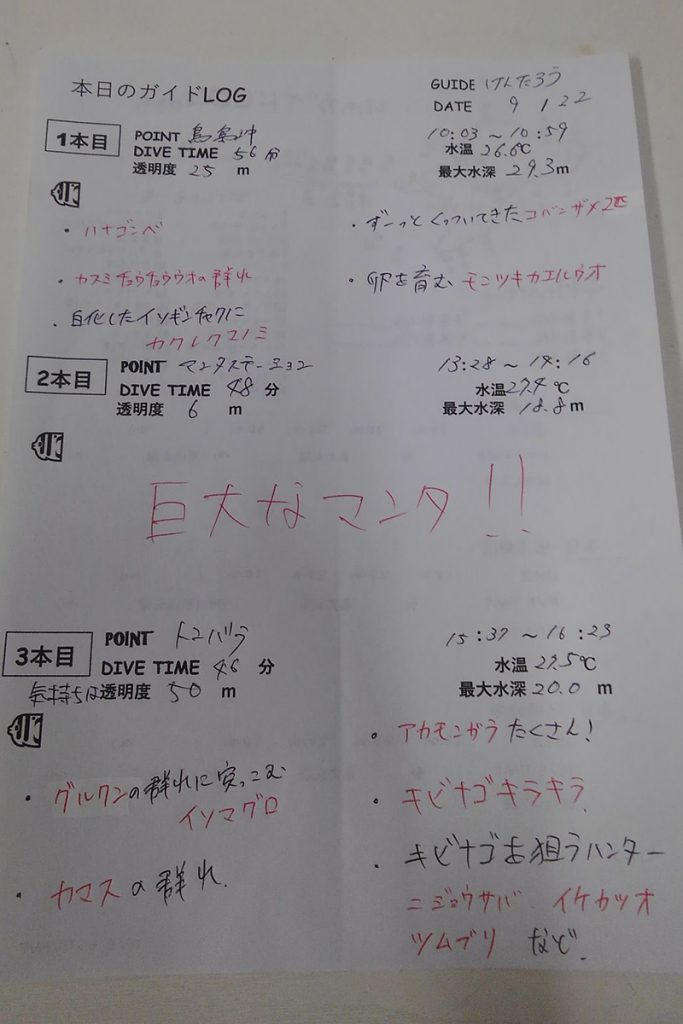 本日のガイドLOG
GUIDE けんたろう
DATE 9 / 22
1本目
POINT 鳥島沖
DIVE TIME 56 分
透明度 25 m
10:03 ~ 10:59
水温 26.6℃
最大水深 29.3m
・ハナゴンベ
・カスミチョウチョウウオの群れ
・白化したイソギンチャクに
カクレクマノミ
・ずーっとくっついてきたコバンザメ2匹
・卵を育む モンツキカエルウオ
2本目
POINT マンタステーション
DIVE TIME 48 分
透明度 6 m
13:28 ~ 14:16
水温27.4℃
最大水深 18.8m
巨大なマンタ!!
3本目
POINT トンバラ
DIVE TIME 46 分
気持ちは透明度 50 m
15:37 ~ 16:23
水温 27.5℃
最大水深 20.0 m
・グルクンの群れに突っこむ
イソマグロ
・カマスの群れ.
・アカモンガラたくさん!
・キビナゴキラキラ.
・キビナゴを狙うハンター
ニジョウサバ. イケカツオ
ツムブリ など.